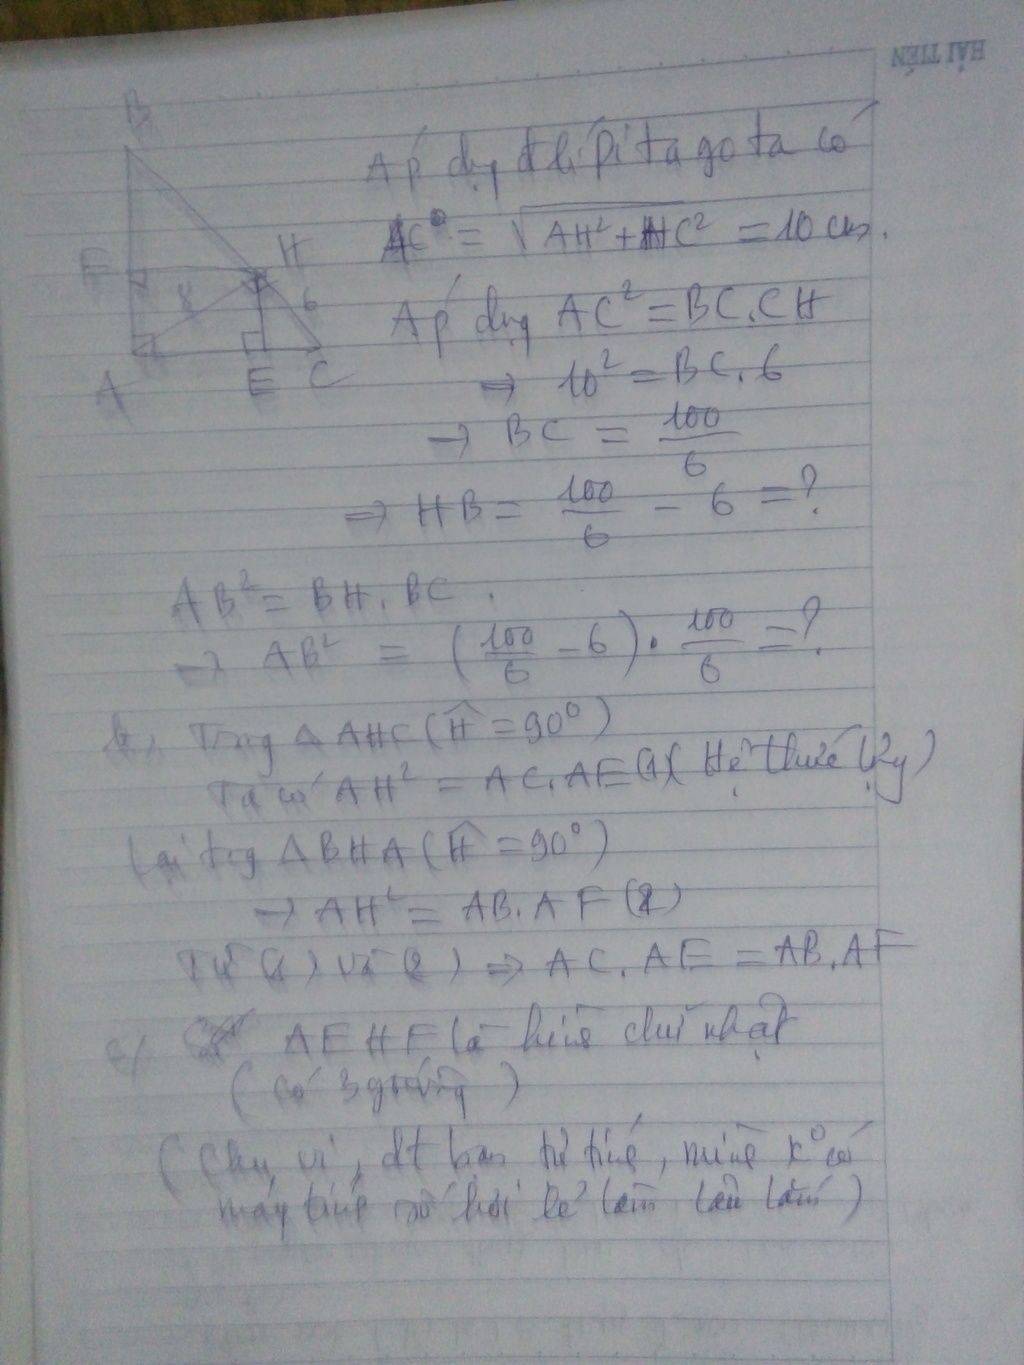 HẢI TIẾN
B
F
H
8
6
A
E
C
Áp dụg đlí Pitago ta có
AC = √AH² + HC² = 10 cm.
Áp dụg AC² = BC.CH
⇒ 10² = BC.6
→ BC = 100/6
⇒ HB = 100/6 - 6 = ?
AB² = BH.BC.
→ AB² = (100/6 - 6) . 100/6 = ?
b, Trog Δ AHC (Ĥ = 90°)
Ta có AH² = AC.AE (1) (Hệ thức lượg)
Lại trog Δ BHA (Ĥ = 90°)
→ AH² = AB.AF (2)
Từ (1) và (2) ⇒ AC.AE = AB.AF
c/ AEHF là hình chữ nhật
(có 3 g vuông)
(Chu vi, dt bạn tự tính, mình k° có
máy tính số hơi lẻ làm lâu lắm)